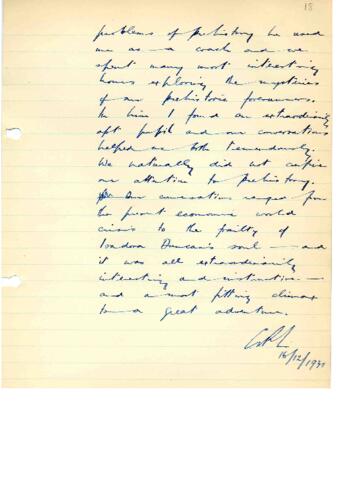 18
problems of prehistory he used
me as a coach and we
spent many most interesting
hours exploring the mysteries
of our prehistoric forerunners.
In him I found an extraordinarily
apt pupil and our conversations
helped us both tremendously.
We naturally did not confine
our attention to prehistory.
Our conversations ranged from
the present economic world
crisis to the frailty of
Isadora Duncan's soul — and
it was all extraordinarily
interesting and instructive —
and a most fitting climax
to a great adventure.
16/12/1931